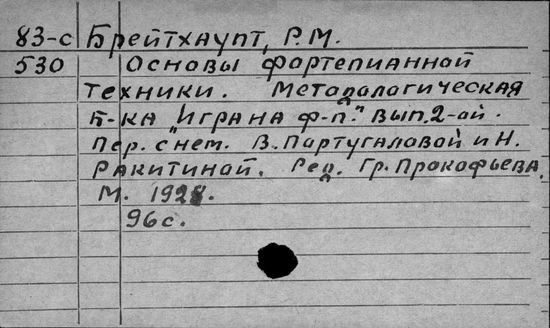 83-с Брейтхаупт, Р.М.
530 Основы фортепианной
техники. Методологическая
Б-ка "Игра на ф-п." Вып. 2-ой.
Пер. с нем. В. Партугаловой и Н.
Ракитиной. Ред. Гр. Прокофьева.
М. 1928.
96 с.